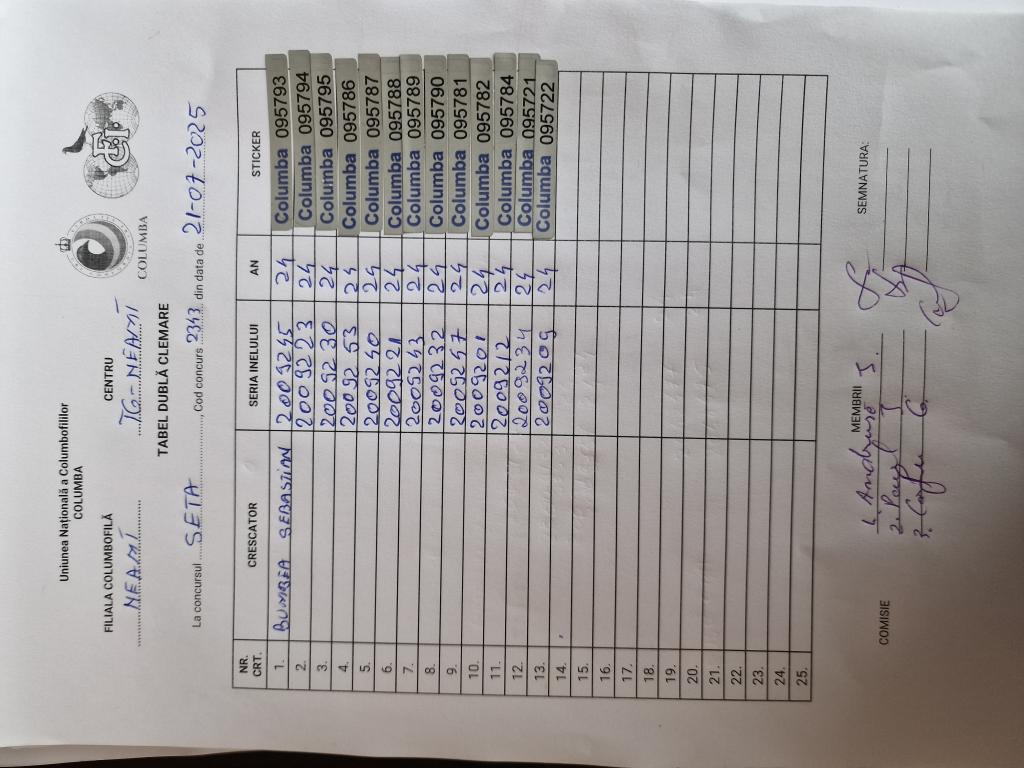 Uniunea Națională a Columbofililor
COLUMBA
COLUMBA
FILIALA COLUMBOFILĂ CENTRU
NEAMȚ TG-NEAMȚ
TABEL DUBLĂ CLEMARE
La concursul SETA, Cod concurs 2343 din data de 21-07-2025
NR. CRT. CRESCATOR SERIA INELULUI AN STICKER
1. BUMBEA SEBASTIAN 2009245 24 Columba 095793
2. 2009223 24 Columba 095794
3. 2009230 24 Columba 095795
4. 2009253 24 Columba 095786
5. 2009240 24 Columba 095787
6. 2009221 24 Columba 095788
7. 2009243 24 Columba 095789
8. 2009232 24 Columba 095790
9. 2009247 24 Columba 095781
10. 2009201 24 Columba 095782
11. 2009212 24 Columba 095784
12. 2009234 24 Columba 095721
13. 2009209 24 Columba 095722
14.
15.
16.
17.
18.
19.
20.
21.
22.
23.
24.
25.
COMISIE MEMBRII SEMNATURA:
1.
2.
3.